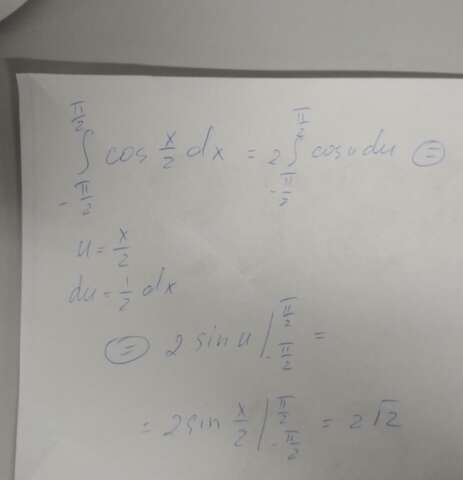 ∫_{-π/2}^{π/2} cos x/2 dx = 2 ∫_{-π/2}^{π/2} cos u du ⊜
u = x/2
du = 1/2 dx
⊜ 2 sin u |_{-π/2}^{π/2} =
= 2 sin x/2 |_{-π/2}^{π/2} = 2√2